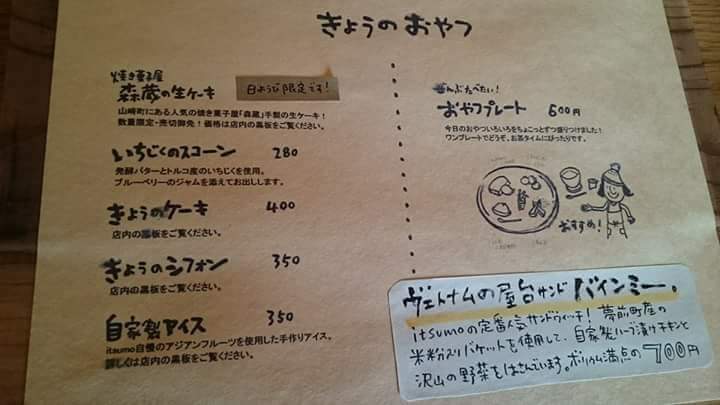 きょうのおやつ
焼き菓子屋
森蔵の生ケーキ
日ようび限定です!
山崎町にある人気の焼き菓子屋「森蔵」手製の生ケーキ!
数量限定・売切御免!価格は店内の黒板をご覧ください。
いちじくのスコーン 280
発酵バターとトルコ産のいちじくを使用。
ブルーベリーのジャムを添えてお出しします。
きょうのケーキ 400
店内の黒板をご覧ください。
きょうのシフォン 350
店内の黒板をご覧ください。
自家製アイス 350
itsumo自慢のアジアンフルーツを使用した手作りアイス。
詳しくは店内の黒板をご覧ください。
ぜんぶたべたい!
おやつプレート 600円
今日のおやついろいろをちょこっとずつ盛りつけました!
ワンプレートでどうぞ。お茶タイムにぴったりです。
おすすめ!
ヴェトナムの屋台サンド バインミー。
itsumoの定番人気サンドウィッチ! 夢前町産の
米粉入りバケットを使用して、自家製ハーブ漬けチキンと
沢山の野菜をはさんでいます。ボリウム満点の700円